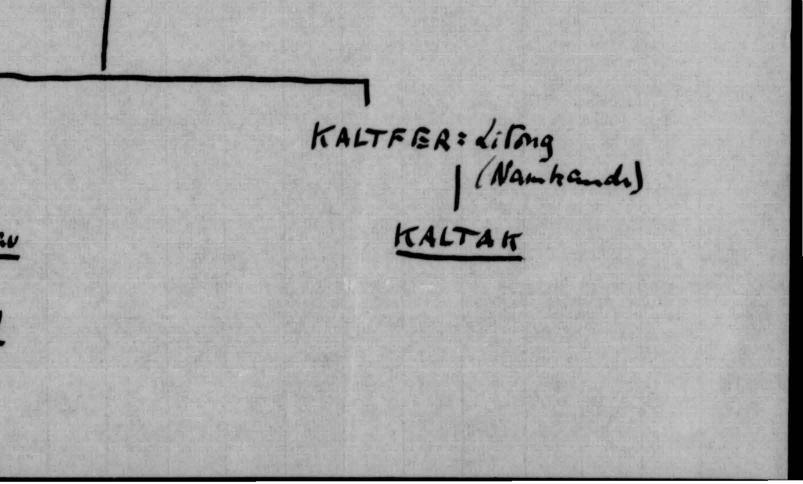 KALTFER = Litong
(Namkands)
KALTAK